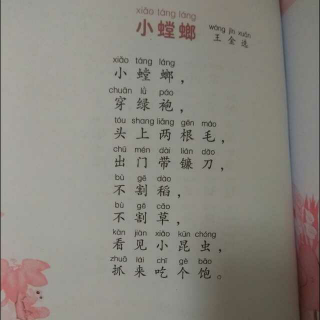 xiǎo táng láng
小螳螂
wáng jīn xuǎn
王金选
xiǎo táng láng
小螳螂，
chuān lǜ páo
穿绿袍，
tóu shang liǎng gēn máo
头上两根毛，
chū mén dài lián dāo
出门带镰刀，
bù gē dào
不割稻，
bù gē cǎo
不割草，
kàn jiàn xiǎo kūn chóng
看见小昆虫，
zhuā lái chī gè bǎo
抓来吃个饱。